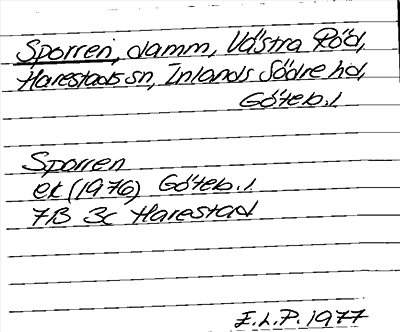 Sporren, damm, Västra Röd,
Harestads sn, Inlands Södre hd,
Göteb. l.
Sporren
ek (1976) Göteb. l.
7B 3c Harestad
E.L.P. 1977